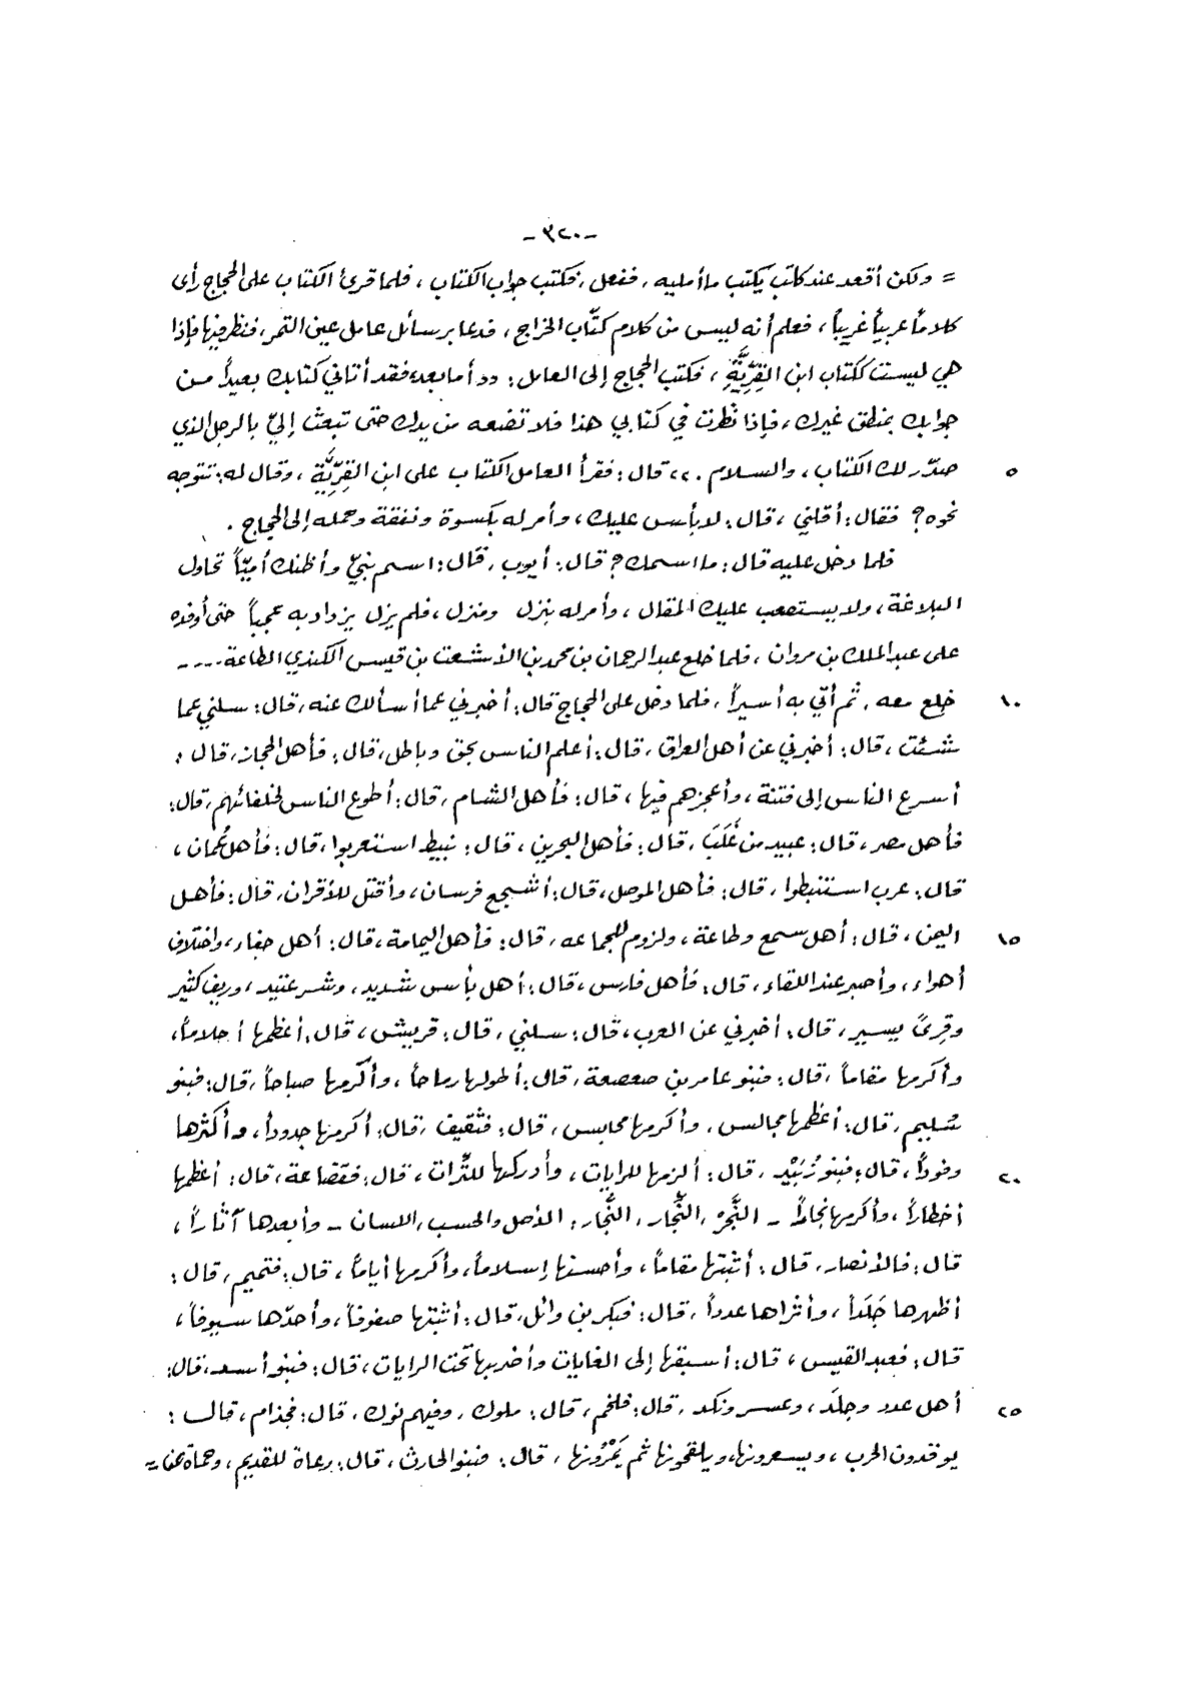 -٣٢٠-
= ولكن أقعد عند كاتب يكتب ما أمليه، ففعل، فكتب جواب الكتاب، فلما قرئ الكتاب على الحجاج رأى
كلاماً عربياً غريباً، فعلم أنه ليس من كلام كتّاب الخراج، فدعا برسائل عامل عين التمر، فنظر فيها فإذا
هي ليست ككتاب ابن القِرِّيَّةِ، فكتب الحجاج إلى العامل: «أما بعد، فقد أتاني كتابك بعيداً من
جوابك بمنطق غيرك، فإذا نظرت في كتابي هذا فلا تضعه من يدك حتى تبعث إليّ بالرجل الذي
صدّر لك الكتاب، والسلام.» قال: فقرأ العامل الكتاب على ابن القِرِّيَّةِ، وقال له: تتوجه ٥
نحوه؟ فقال: أقلني، قال: لا بأس عليك، وأمر له بكسوة ونفقة وحمله إلى الحجاج.
فلما دخل عليه قال: ما اسمك؟ قال: أيوب، قال: اسم نبيّ وأظنك أميّاً تحاول
البلاغة، ولا يستصعب عليك المقال، وأمر له بنزل ومنزل، فلم يزل يزداد به عجباً حتى أوفده
على عبد الملك بن مروان، فلما خلع عبد الرحمان بن محمد بن الأشعث بن قيس الكندي الطاعة....
خلع معه، ثم أُتي به أسيراً، فلما دخل على الحجاج قال: أخبرني عما أسألك عنه، قال: سلني عما ١٠
شئت، قال: أخبرني عن أهل العراق، قال: أعلم الناس بحق وباطل، قال: فأهل الحجاز، قال:
أسرع الناس إلى فتنة، وأعجزهم فيها، قال: فأهل الشام، قال: أطوع الناس لخلفائهم، قال:
فأهل مصر، قال: عبيد من غَلَبَ، قال: فأهل البحرين، قال: نبيط استعربوا، قال: فأهل عُمان،
قال: عرب استنبطوا، قال: فأهل الموصل، قال: أشجع فرسان، وأقتل للأقران، قال: فأهل
اليمن، قال: أهل سمع وطاعة، ولزوم للجماعه، قال: فأهل اليمامة، قال: أهل جفاء، واختلاف ١٥
أهواء، وأصبر عند اللقاء، قال: فأهل فارس، قال: أهل بأس شديد، وشر عتيد، وريف كثير
وقِرىً يسير، قال: أخبرني عن العرب، قال: سلني، قال: قريش، قال: أعظمها أحلاماً،
وأكرمها مقاماً، قال: فبنو عامر بن صعصعة، قال: أطولها رماحاً، وأكرمها صباحاً، قال: فبنو
سُليم، قال: أعظمها مجالس، وأكرمها محابس، قال: فثقيف، قال: أكرمها جدوداً، وأكثرها
وفوداً، قال: فبنو زُبَيْد، قال: ألزمها للرايات، وأدركها للتِّرات، قال: فقضاعة، قال: أعظمها ٢٠
أخطاراً، وأكرمها نجاراً - النَّجْرُ، النِّجار، النُّجار: الأصل والحسب، اللسان - وأبعدها آثاراً،
قال: فالأنصار، قال: أثبتها مقاماً، وأحسنها إسلاماً، وأكرمها أياماً، قال: فتميم، قال:
أظهرها جَلَداً، وأثراها عدداً، قال: فبكر بن وائل، قال: أثبتها صفوفاً، وأحدّها سيوفاً،
قال: فعبد القيس، قال: أسبقها إلى الغايات وأضربها تحت الرايات، قال: فبنو أسد، قال:
أهل عدد وجلَد، وعسر ونكد، قال: فلخم، قال: ملوك، وفيهم نوك، قال: فجذام، قال: ٢٥
يوقدون الحرب، ويسعرونها، ويلقحونها ثم يَمْرُونها، قال: فبنو الحارث، قال: رعاة للقديم، وحماة عن =